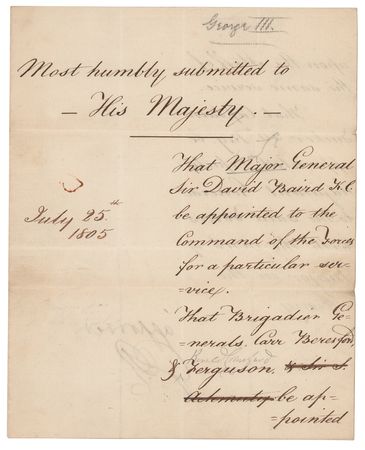 George III.
Most humbly submitted to
— His Majesty. —
That Major General
Sir David Baird K.C.
July 25th
1805
be appointed to the
Command of the Forces
for a particular ser=
=vice.
That Brigadier Ge=
=nerals Carr Beresford,
& Ferguson, & Sir S.
Achmuty be ap=
=pointed